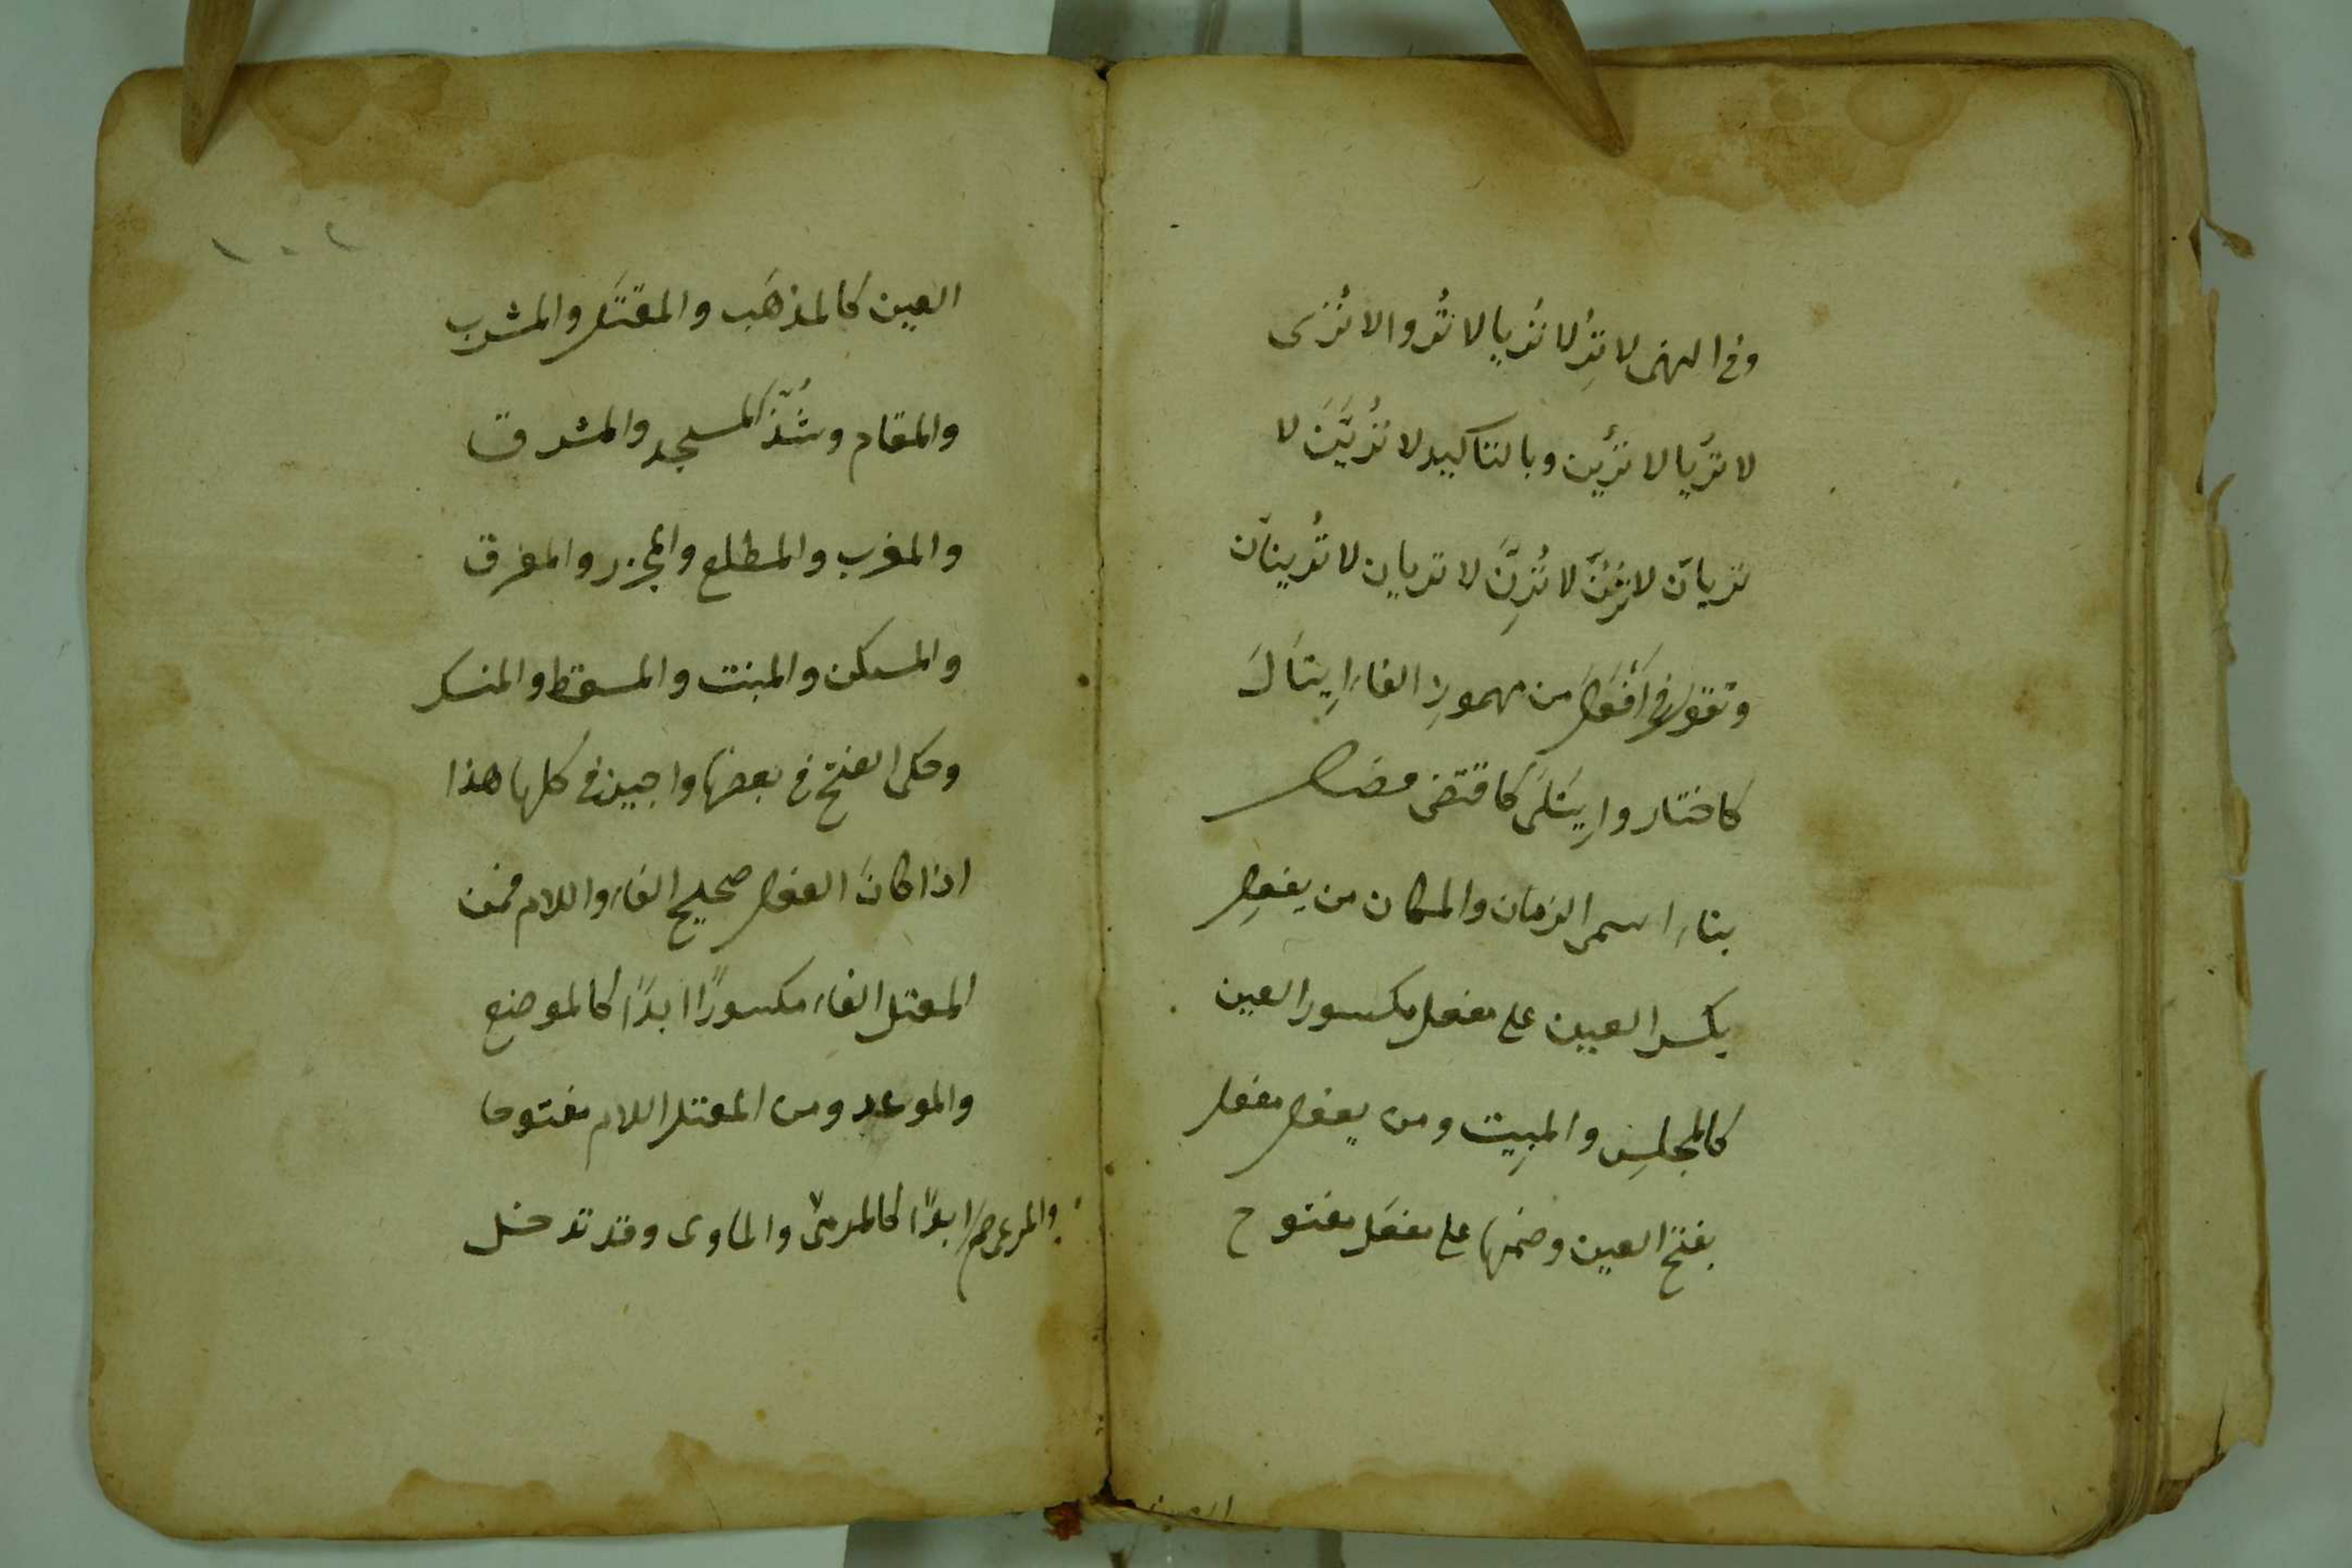 وفى النهى لا تُرِ لا تُريا لا تُروا لا تُرى
لا تُريا لا تُرين وبالتاكيد لا تُريَنّ لا
تريانّ لا ترُنّ لا تُرِنّ لا تريان لا تُرينانّ
وتقول فى اَفْتَعَل من مهموز الفاء اِيتاَلَ
كاختار واِيتَلىَ كاقتضى فصل
بناء اسمى الزمان والمكان من يفعِل
بكسر العين على مفعل مكسور العين
كالمجلِس والمبِيت ومن يفعل مفعل
بفتح العين وضمها على مفعَل مفتوح
العين
١٠٢
العين كالمذهَب والمقتَل والمشرب
والمقام وشُذّ المسجد والمشرق
والمغرب والمطلع والمجزر والمفرق
والمسكن والمنبت والمسقط والمنسك
وحكى الفتح فى بعضها واجيز فى كلها هذا
اذا كانَ الفعل صحيح الفاء واللام فمن
المعتل الفاء مكسورًا ابدًا كالموضع
والموعد ومن المعتل اللام مفتوحا
ابدًا كالمرمى والماوى وقد تدخل
والمرعى صح